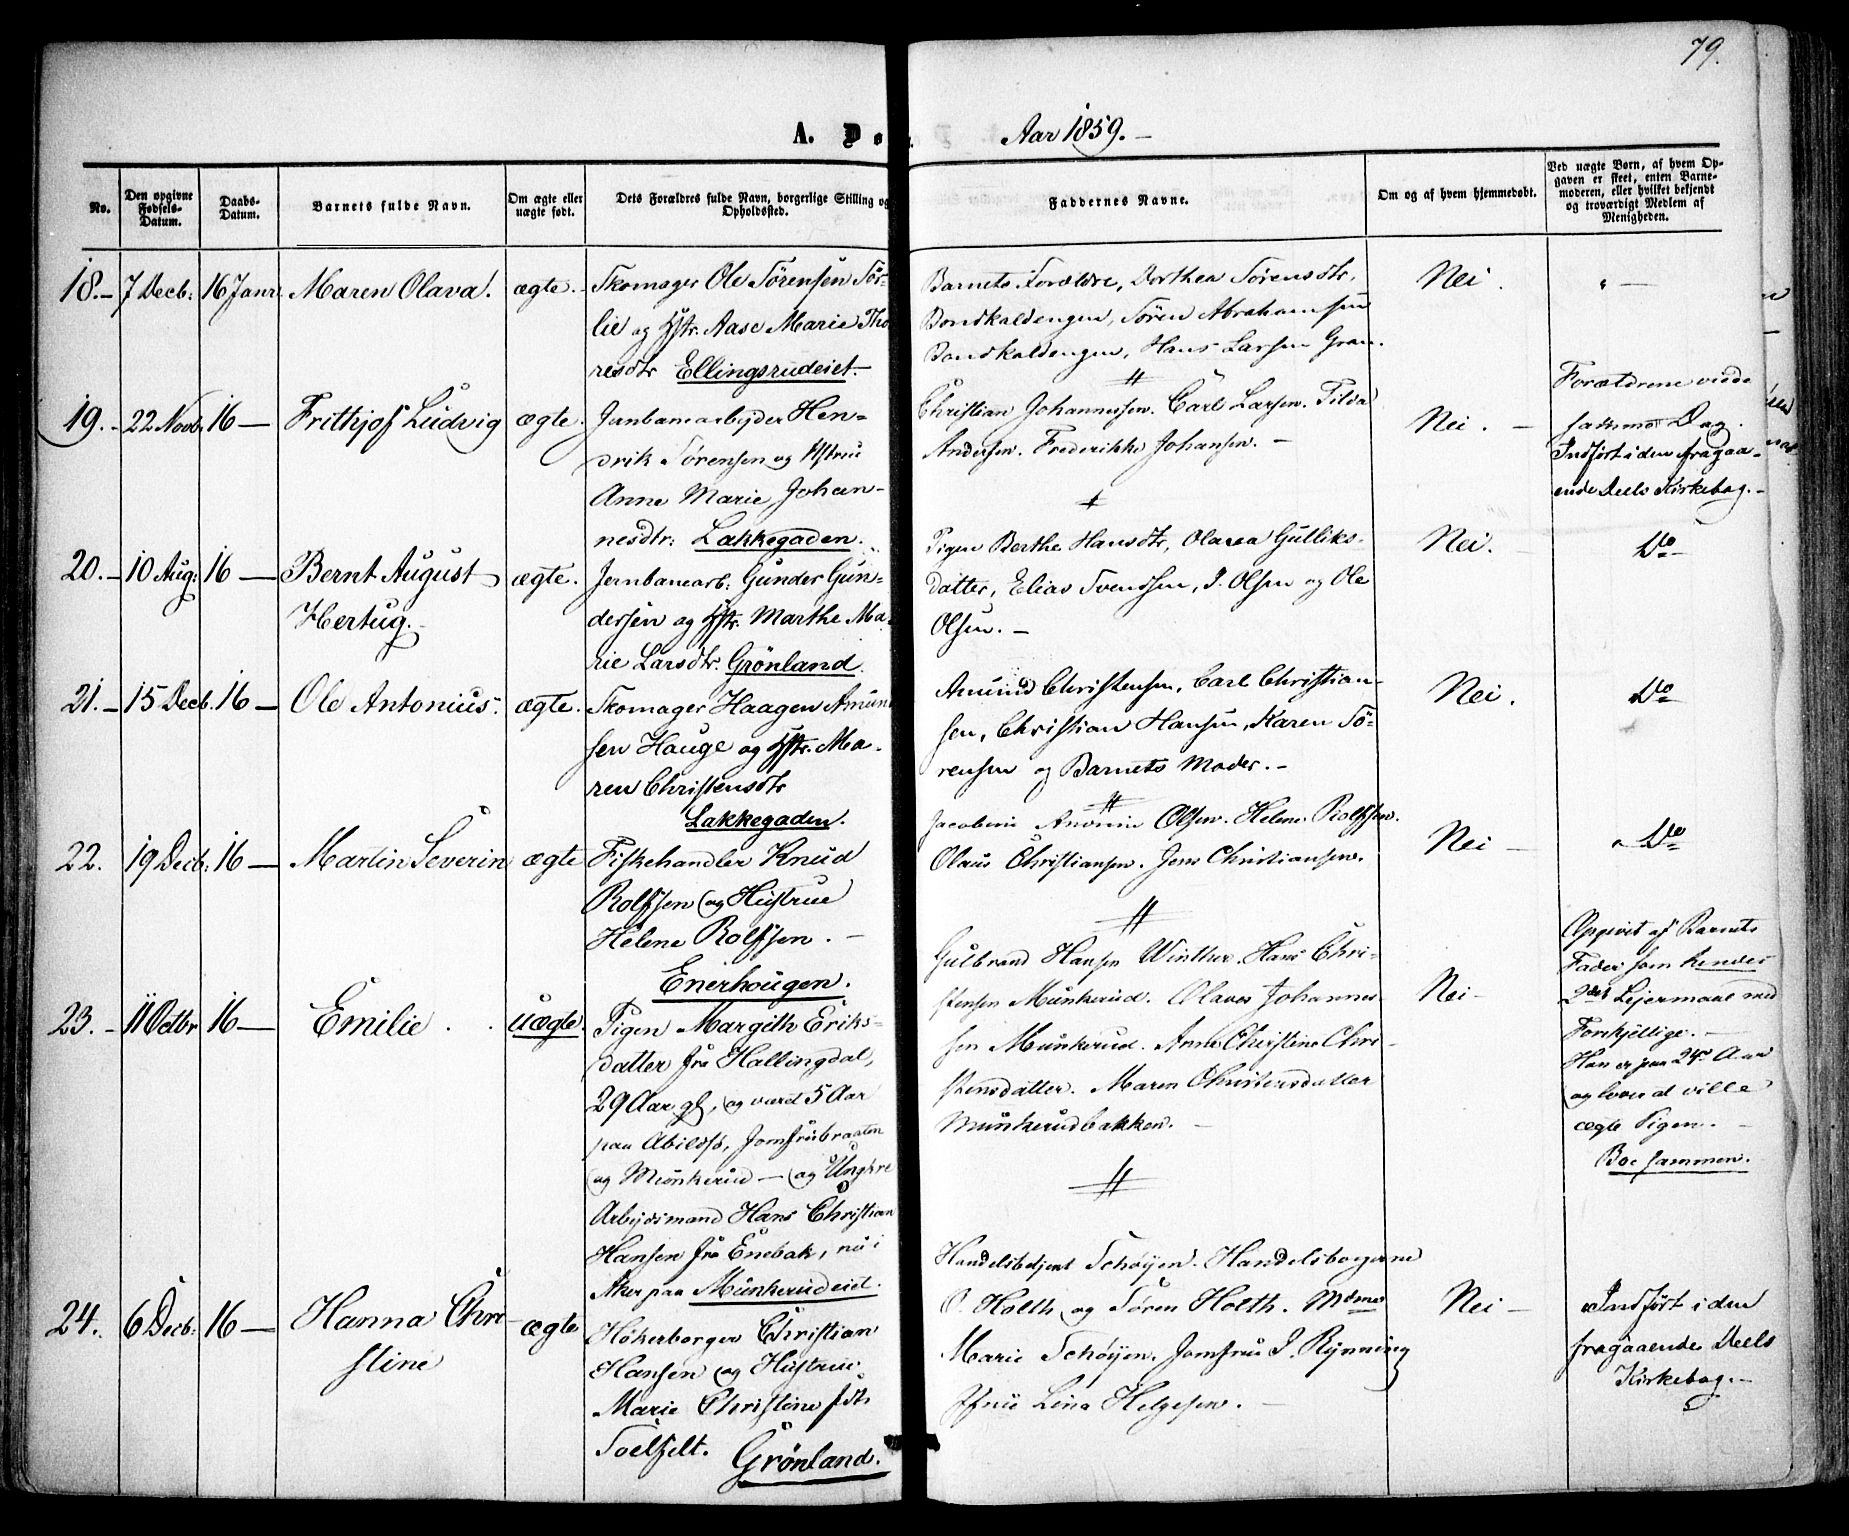 79.
A. Dø
Aar 1859.
No.
Den opgivne
Fødsels-
Datum.
Daabs-
Datum.
Barnets fulde Navn.
Om ægte eller
uægte født.
Dets Forældres fulde Navn, borgerlige Stilling og
Opholdssted.
Faddernes Navne.
Om og af hvem hjemmedøbt.
Ved uægte Børn, af hvem Op-
gaven er skeet, enten Barne-
moderen, eller hvilket bekjendt
og troværdigt Medlem af
Menigheden.
18. 7 Decb: 16 Janr. Maren Olava. ægte.
Skomager Ole Sörensen Sör-
lie og Hstr. Aase Marie Tho
resdtr Ellingsrudeiet.
Barnets Forældre, Dorthea Sörensdtr,
Bondkaldengen, Sören Abrahamsen
Bondkaldengen, Hans Larsen Gran.
Nei.
19. 22 Novb. 16 Frithjof Ludvig ægte.
Jernbanearbejder Hen-
drik Sörensen og Hstru
Anne Marie Johan-
nesdtr: Lakkegaden.
Christian Johannessen. Carl Larsen. Tilda
Andersen. Frederikke Johansen.
Nei.
Forældrene viede
samme Dag.
Indfört i den fragaa-
ende Deels Kirkebog.
20. 10 Aug: 16 Bernt August
Hertug.
ægte.
Jernbanearb: Gunder Gun-
dersen og Hstr. Marthe Ma-
rie Larsdtr. Grönland.
Pigen Berthe Hansdtr, Olava Gulliks-
datter, Elias Svendsen, I. Olsen og Ole
Olsen.
Nei.
Do
21. 15 Decb. 16 Ole Antonius. ægte.
Skomager Haagen Amun
sen Hauge og Hstr. Ma-
ren Christensdtr
Lakkegaden.
Amund Christensen, Carl Christian-
sen, Christian Hansen, Karen Sö-
rensen og Barnets Moder.
Nei.
Do
22. 19 Decb: 16 Martin Severin ægte
Fiskehandler Knud
Rolfsen og Hustrue
Helene Rolfsen.
Enerhougen.
Olsen. Helene Rolfsen.
Olaus Christiansen. Jens Christiansen.
Nei
Do
23. 11 Octbr 16 Emilie. uægte.
Pigen Margith Eriks-
datter fra Hallingdal,
29 Aar gl, og været 5 Aar
paa Abildsö, Jomfrubraaten
og Munkerud og Ungkr
Arbejdsmand Hans Christian
Hansen fra Enebak, nu i
Aker paa Munkerudeiet.
Gulbrand Hansen Winther. Hans Chri-
stensen Munkerud. Olaves Johannes-
sen Munkerud. Anne Christine Chri-
stensdatter. Maren Christensdatter
Munkerudbakken.
Nei
Opgivet af Barnets
Fader som hendes
2det Lejermaal med
Forskjellige.
Han er paa 24de Aar
og lover at ville
ægte Pigen.
Boe sammen.
24. 6 Decb: 16 Hanna Chri-
stine
ægte
Hökerborger Christian
Hansen og Hustrue
Marie Christine fdt.
Toelfelt. Grönland.
Handelsbetjent Schöijen. Handelsborgerne
O. Holth og Sören Holth. Mdme
Marie Schöijen. Jomfru I. Rynning
Jfrue Lina Helgesen.
Nei
Indfört i den
fragaaende Deels
Kirkebog.